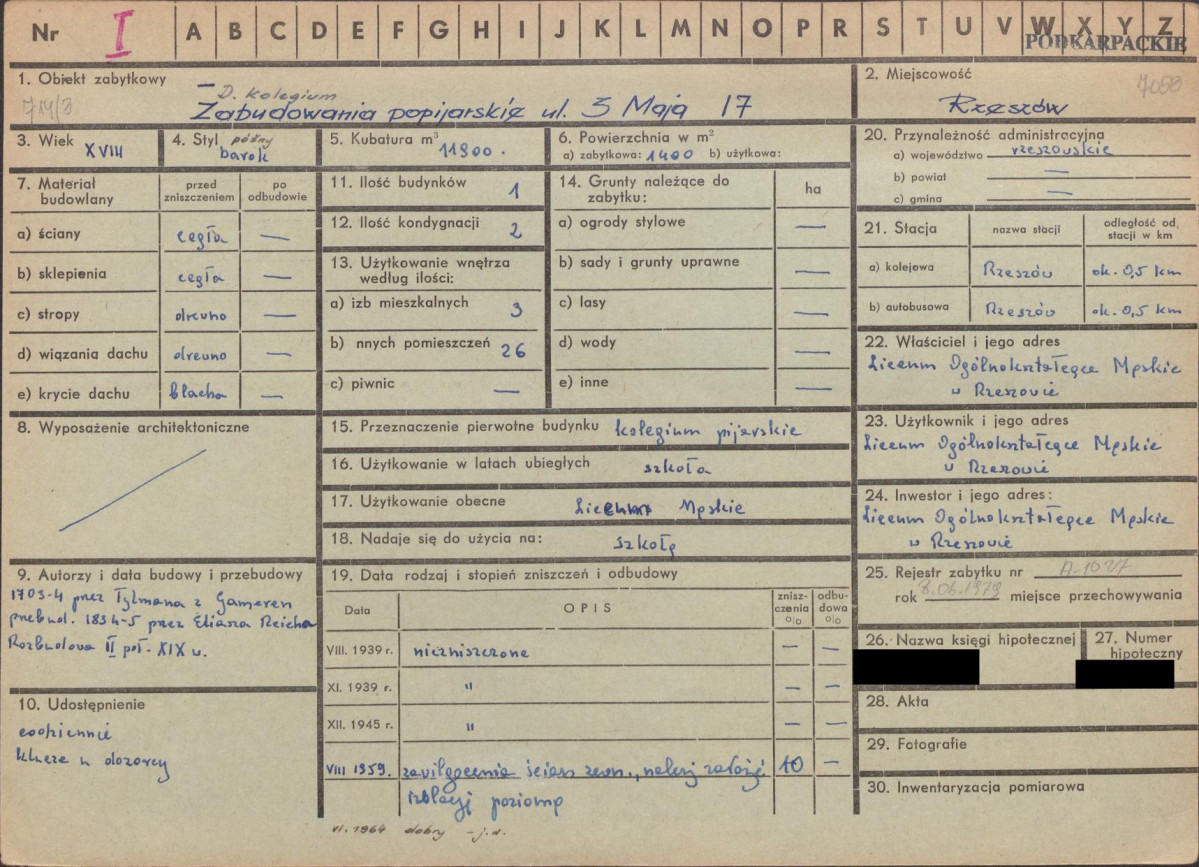 Nr I A B C D E F G H I J K L M N O P R S T U V W X Y Z
PODKARPACKIE
1. Obiekt zabytkowy
714/3
D. Kolegium
Zabudowania popijarskie ul. 3 Maja 17
2. Miejscowość
7058
Rzeszów
3. Wiek XVIII
4. Styl późny barok
5. Kubatura m³ 11900.
6. Powierzchnia w m²
a) zabytkowa: 1400 b) użytkowa:
20. Przynależność administracyjna
a) województwo rzeszowskie
b) powiat —
c) gmina —
7. Materiał budowlany
przed zniszczeniem
po odbudowie
a) ściany cegła —
b) sklepienia cegła —
c) stropy drewno —
d) wiązania dachu drewno —
e) krycie dachu blacha —
11. Ilość budynków 1
12. Ilość kondygnacji 2
13. Użytkowanie wnętrza według ilości:
a) izb mieszkalnych 3
b) nnych pomieszczeń 26
c) piwnic —
14. Grunty należące do zabytku:
ha
a) ogrody stylowe —
b) sady i grunty uprawne —
c) lasy —
d) wody —
e) inne —
21. Stacja
nazwa stacji
odległość od stacji w km
a) kolejowa Rzeszów ok. 0,5 km
b) autobusowa Rzeszów ok. 0,5 km
22. Właściciel i jego adres
Liceum Ogólnokształcące Męskie
w Rzeszowie
8. Wyposażenie architektoniczne
15. Przeznaczenie pierwotne budynku kolegium pijarskie
16. Użytkowanie w latach ubiegłych szkoła
17. Użytkowanie obecne Liceum Męskie
18. Nadaje się do użycia na: szkołę
23. Użytkownik i jego adres
Liceum Ogólnokształcące Męskie
w Rzeszowie
24. Inwestor i jego adres:
Liceum Ogólnokształcące Męskie
w Rzeszowie
9. Autorzy i data budowy i przebudowy
1703-4 przez Tylmana z Gameren
przebud. 1834-5 przez Eliasza Reicha
Rozbudowa II poł. XIX w.
10. Udostępnienie
codziennie
klucze u dozorcy
19. Data rodzaj i stopień zniszczeń i odbudowy
Data
OPIS
zniszczenia %
odbudowa %
VIII. 1939 r. niezniszczone — —
XI. 1939 r. " — —
XII. 1945 r. " — —
VIII 1959. zawilgocenia ścian zewn., należy założyć 10 —
izolację poziomą
VI. 1964 dobry - j.d.
25. Rejestr zabytku nr A-1027
rok 8.06.1979 miejsce przechowywania
26. Nazwa księgi hipotecznej
27. Numer hipoteczny
28. Akta
29. Fotografie
30. Inwentaryzacja pomiarowa